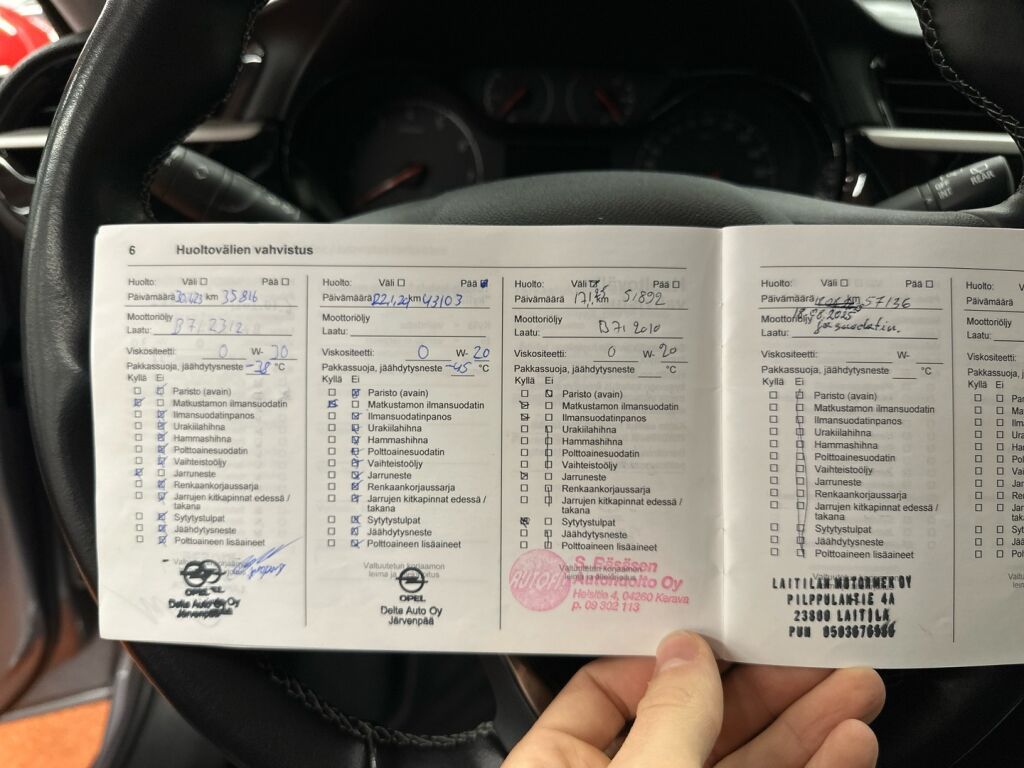 6 Huoltovälien vahvistus
Huolto: Väli Pää
Päivämäärä km 35816
Moottoriöljy
Laatu: B71 2312
Viskositeetti: 0 W- 30
Pakkassuoja, jäähdytysneste -38 °C
Kyllä Ei
Paristo (avain)
Matkustamon ilmansuodatin
Ilmansuodatinpanos
Urakiilahihna
Hammashihna
Polttoainesuodatin
Vaihteistoöljy
Jarruneste
Renkaankorjaussarja
Jarrujen kitkapinnat edessä /
takana
Sytytystulpat
Jäähdytysneste
Polttoaineen lisäaineet
OPEL
Delta Auto Oy
Järvenpää
Huolto: Väli Pää
Päivämäärä km 43103
Moottoriöljy
Laatu:
Viskositeetti: 0 W- 20
Pakkassuoja, jäähdytysneste -45 °C
Kyllä Ei
Paristo (avain)
Matkustamon ilmansuodatin
Ilmansuodatinpanos
Urakiilahihna
Hammashihna
Polttoainesuodatin
Vaihteistoöljy
Jarruneste
Renkaankorjaussarja
Jarrujen kitkapinnat edessä /
takana
Sytytystulpat
Jäähdytysneste
Polttoaineen lisäaineet
Valtuutetun korjaamon
leima ja
OPEL
Delta Auto Oy
Järvenpää
Huolto: Väli Pää
Päivämäärä km 51892
Moottoriöljy
Laatu: B71 2010
Viskositeetti: 0 W- 20
Pakkassuoja, jäähdytysneste °C
Kyllä Ei
Paristo (avain)
Matkustamon ilmansuodatin
Ilmansuodatinpanos
Urakiilahihna
Hammashihna
Polttoainesuodatin
Vaihteistoöljy
Jarruneste
Renkaankorjaussarja
Jarrujen kitkapinnat edessä /
takana
Sytytystulpat
Jäähdytysneste
Polttoaineen lisäaineet
Valtuutetun korjaamon
AUTOFIT
S. Räsäsen
Autohuolto Oy
04260 Kerava
p. 09 302 113
Huolto: Väli Pää
Päivämäärä km 57136
Moottoriöljy 18.08.2025
Laatu: ja suodatin.
Viskositeetti: W-
Pakkassuoja, jäähdytysneste °C
Kyllä Ei
Paristo (avain)
Matkustamon ilmansuodatin
Ilmansuodatinpanos
Urakiilahihna
Hammashihna
Polttoainesuodatin
Vaihteistoöljy
Jarruneste
Renkaankorjaussarja
Jarrujen kitkapinnat edessä /
takana
Sytytystulpat
Jäähdytysneste
Polttoaineen lisäaineet
LAITILAN MOTORMEK OY
PILPPULANTIE 4A
23800 LAITILA
PUH
OFF
INT
REAR